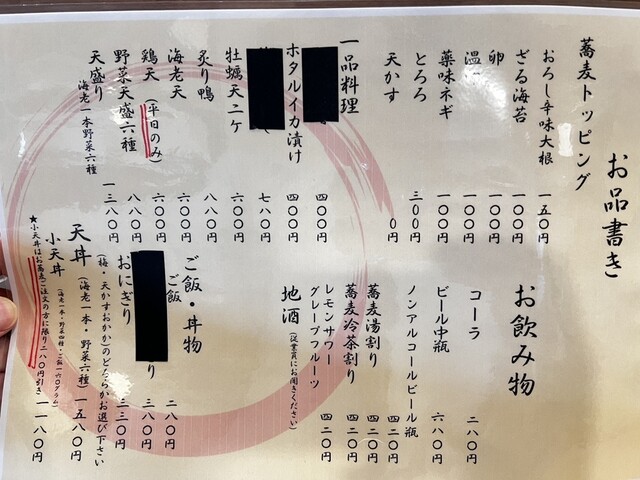 お品書き
蕎麦トッピング
おろし辛味大根 一五〇円
ざる海苔 一〇〇円
卵 一〇〇円
温 一〇〇円
薬味ネギ 一〇〇円
とろろ 三〇〇円
天かす 〇円
一品料理
四〇〇円
ホタルイカ漬け 四〇〇円
七八〇円
牡蠣天二ケ 六〇〇円
炙り鴨 八八〇円
海老天 六〇〇円
鶏天(平日のみ) 六〇〇円
野菜天盛六種 八八〇円
天盛り 海老一本野菜六種 一三八〇円
お飲み物
コーラ 二八〇円
ビール中瓶 六八〇円
ノンアルコールビール瓶 四二〇円
蕎麦湯割り 四二〇円
蕎麦冷茶割り 四二〇円
レモンサワー
グレープフルーツ 四二〇円
地酒(従業員にお聞きください)
ご飯・丼物
ご飯 二八〇円
り 三八〇円
おにぎり 二三〇円
(梅・天かすおかか)のどちらかお選び下さい
天丼(海老一本・野菜六種) 一五八〇円
小天丼(海老一本・野菜四種・ご飯一六〇グラム) 一一八〇円
★小天丼はお蕎麦ご注文の方に限り二八〇円引き